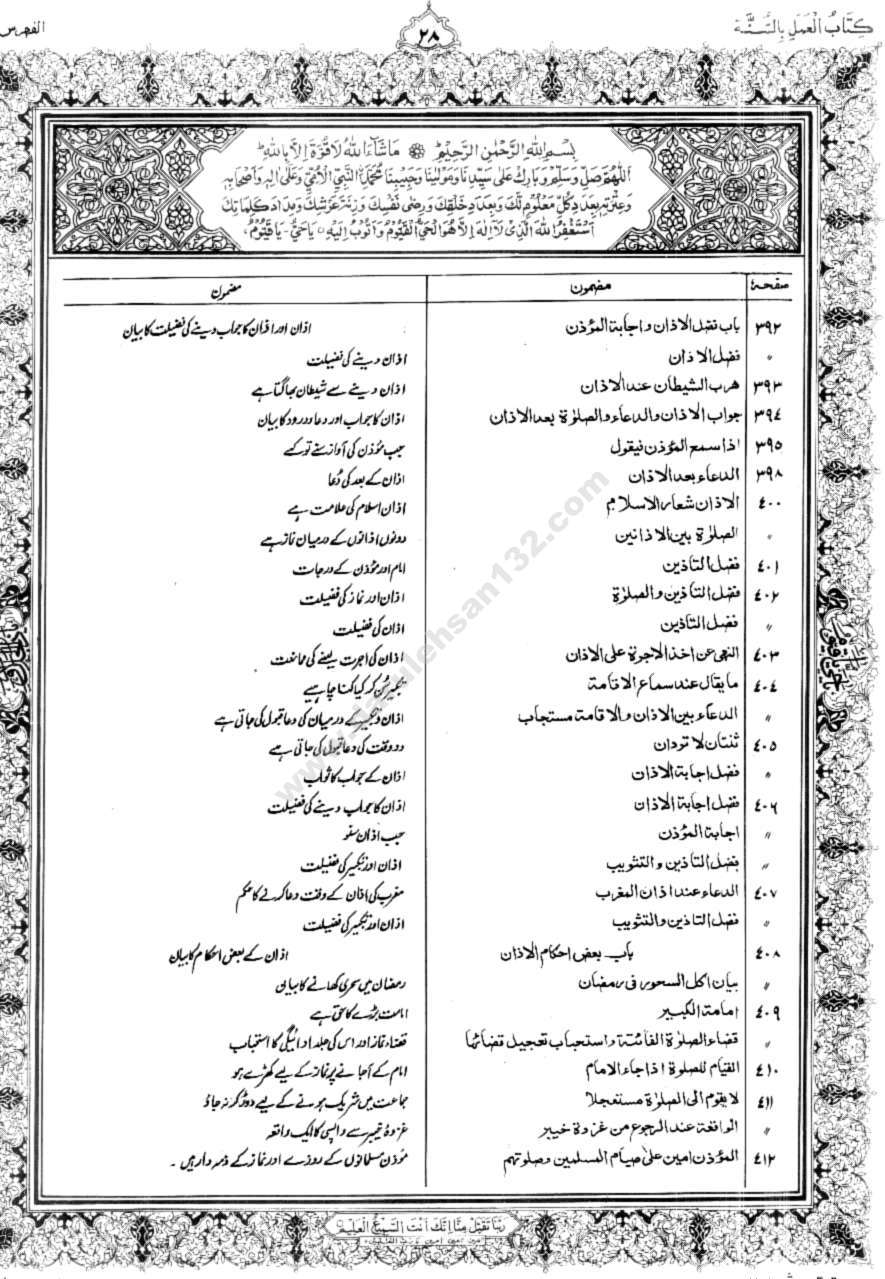 كِتَابُ الْعَمَلِ بِالسُّنَّة
٢٨
الفهرس
بِسْمِ اللهِ الرَّحْمٰنِ الرَّحِيْمِ مَاشَآءَ اللهُ لَا قُوَّةَ اِلَّا بِاللهِ
اَللّٰهُمَّ صَلِّ وَسَلِّمْ وَبَارِكْ عَلٰى سَيِّدِنَا وَمَوْلٰينَا وَحَبِيْبِنَا مُحَمَّدِ النَّبِيِّ الْاُمِّيِّ وَعَلٰى اٰلِهٖ وَاَصْحَابِهٖ
وَعِتْرَتِهٖ بِعَدَدِ كُلِّ مَعْلُوْمٍ لَّكَ وَبِعَدَدِ خَلْقِكَ وَرِضٰى نَفْسِكَ وَزِنَةِ عَرْشِكَ وَمِدَادِ كَلِمَاتِكَ
اَسْتَغْفِرُ اللهَ الَّذِىْ لَآ اِلٰهَ اِلَّا هُوَ الْحَيُّ الْقَيُّوْمُ وَاَتُوْبُ اِلَيْهِ يَا حَيُّ يَا قَيُّوْمُ
صفحة مضمون مضمون
٣٩٢ باب فضل الاذان و اجابة المؤذن اذان اور اذان کا جواب دینے کی فضیلت کا بیان
〃 فضل الاذان اذان دینے کی فضیلت
٣٩٣ هرب الشيطان عند الاذان اذان دینے سے شیطان بھاگتا ہے
٣٩٤ جواب الاذان والدعاء والصلوٰة بعد الاذان اذان کا جواب اور دعا و درود کا بیان
٣٩٥ اذا سمع المؤذن فيقول جب مؤذن کی آواز سنے تو کہے
٣٩٨ الدعاء بعد الاذان اذان کے بعد کی دُعا
٤٠٠ الاذان شعار الاسلام اذان اسلام کی علامت ہے
〃 الصلوٰة بين الاذانين دونوں اذانوں کے درمیان نماز ہے
٤٠١ فضل التاذين امام اور مؤذن کے درجات
٤٠٢ فضل التأذين والصلوٰة اذان اور نماز کی فضیلت
〃 فضل التاذين اذان کی فضیلت
٤٠٣ النهى عن اخذ الاجرة على الاذان اذان کی اجرت لینے کی ممانعت
٤٠٤ ما يقال عند سماع الاقامة تکبیر سُن کر کیا کہنا چاہیے
〃 الدعاء بين الاذان والاقامة مستجاب اذان و تکبیر کے درمیان کی دعا قبول کی جاتی ہے
٤٠٥ ثنتان لا تردان دو وقت کی دعا قبول کی جاتی ہے
〃 فضل اجابة الاذان اذان کے جواب کا ثواب
٤٠٦ فضل اجابة الاذان اذان کا جواب دینے کی فضیلت
〃 اجابة المؤذن جب اذان سنو
〃 فضل التاذين والتثويب اذان اور تکبیر کی فضیلت
٤٠٧ الدعاء عند اذان المغرب مغرب کی اذان کے وقت دعا کرنے کا حکم
〃 فضل التاذين والتثويب اذان اور تکبیر کی فضیلت
٤٠٨ باب بعض احكام الاذان اذان کے بعض احکام کا بیان
〃 بيان اكل السحور فى رمضان رمضان میں سحری کھانے کا بیان
٤٠٩ امامة الكبير امامت بڑے کا حق ہے
〃 قضاء الصلوٰة الفائتة و استحباب تعجيل قضائها قضاء نماز اور اس کی جلد ادائیگی کا استحباب
٤١٠ القيام للصلوة اذا جاء الامام امام کے آجانے پر نماز کے لیے کھڑے ہو
٤١١ لا يقوم الى الصلوٰة مستعجلا جماعت میں شریک ہونے کے لیے دوڑ کر نہ جاؤ
〃 الواقعة عند الرجوع من غزوة خيبر غزوۂ خیبر سے واپسی کا ایک واقعہ
٤١٢ المؤذن امين على صيام المسلمين وصلوتهم مؤذن مسلمانوں کے روزے اور نماز کے ذمہ دار ہیں ۔
رَبَّنَا تَقَبَّلْ مِنَّا اِنَّكَ اَنْتَ السَّمِيْعُ الْعَلِيْمُ